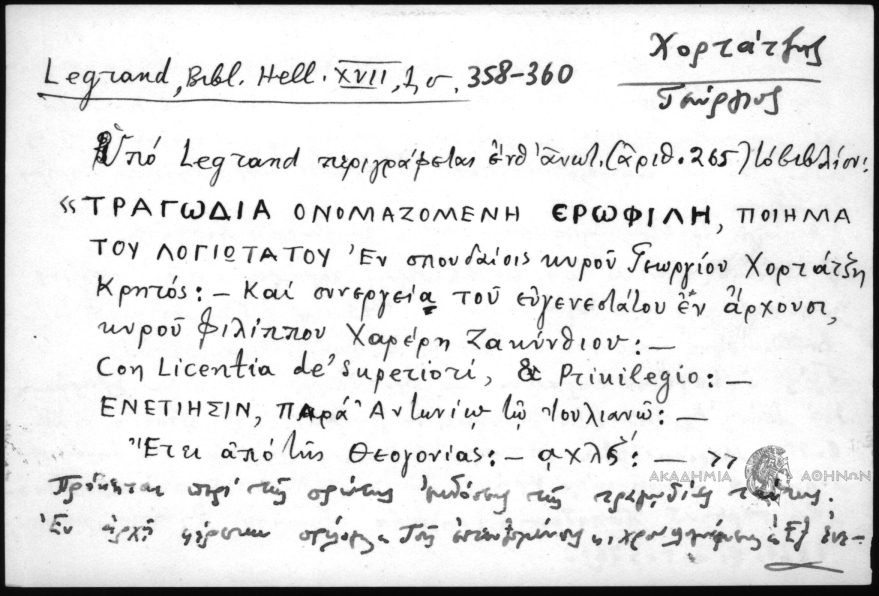 Χορτάτζης
Γεώργιος
Legrand, Bibl. Hell. XVII, 1 σ. 358-360
Ὑπό Legrand περιγράφεται ἐνθ' ἀνωτ. (ἀριθ. 265) τό βιβλίον:
«ΤΡΑΓΩΔΙΑ ΟΝΟΜΑΖΟΜΕΝΗ ΕΡΩΦΙΛΗ, ΠΟΙΗΜΑ
ΤΟΥ ΛΟΓΙΩΤΑΤΟΥ Ἐν σπουδαίοις κυροῦ Γεωργίου Χορτάτζη
Κρητός: – Καί συνεργεία τοῦ εὐγενεστάτου ἐν ἄρχουσι,
κυροῦ Φιλίππου Χαρέρη Ζακύνθιου: –
Con Licentia de' Superiori, & Priuilegio: –
ΕΝΕΤΙΗΣΙΝ, ΠΑρά Ἀντωνίῳ τῷ Ἰουλιανῶ: –
Ἔτει ἀπό τῆς Θεογονίας: – αχλζ: – »
ΑΚΑΔΗΜΙΑ ΑΘΗΝΩΝ
Πρόκειται περί τῆς πρώτης ἐκδόσεως τῆς τραγῳδίας ταύτης.
Ἐν ἀρχῇ φέρεται